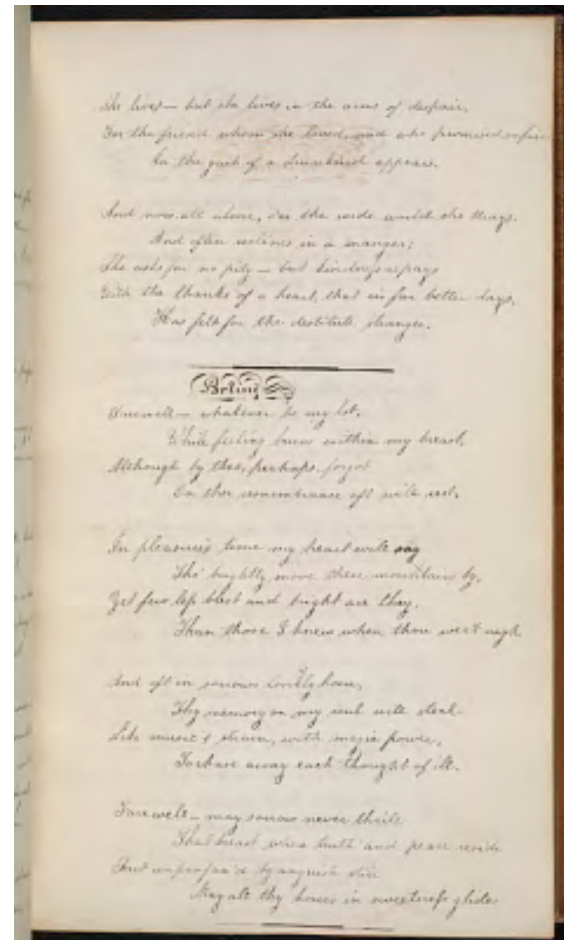 She lives – but she lives in the arms of despair,
For the friend whom she loved, and who promised so fair
In the garb of a drunkard appears.
And now all alone, o'er the wide world she strays.
And often reclines in a manger;
She asks for no pity – but kindness repays
With the thanks of a heart, that in far better days,
Has felt for the destitute stranger.
Farewell – whatever be my lot,
While feeling burns within my breast,
Although by thee, perhaps, forgot
On thee remembrance oft will rest.
In pleasure's time my heart will say
Tho' brightly move these moments by,
Yet few less blest and bright are they,
Than those I knew when thou wert nigh
And oft in sorrows lonely hour,
Thy memory on my soul will steal
Like music's strain, with magic power,
To chase away each thought of ill.
Farewell – may sorrow never thrill
That breast where truth and peace reside
And by anguish still
May all thy hours in sweetness glide